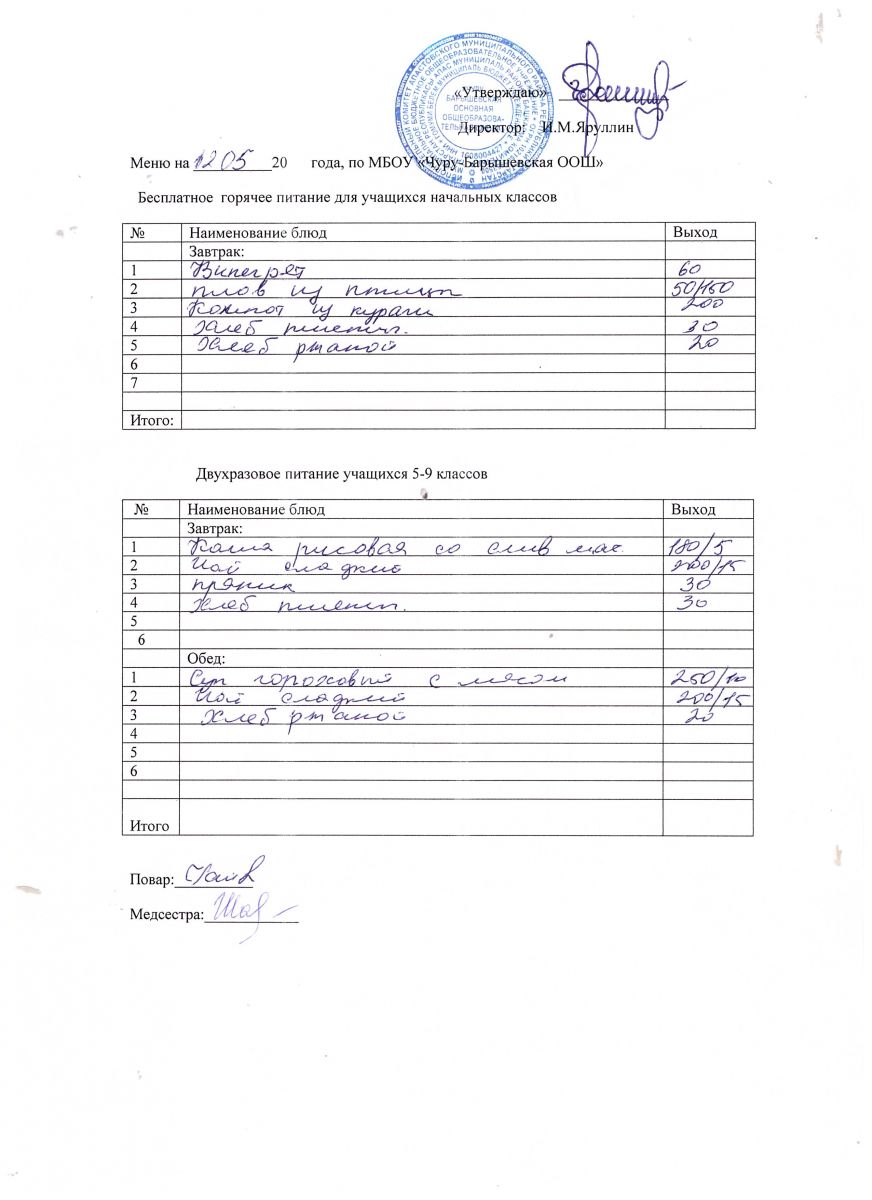 «Утверждаю»
БАРЫШЕВСКАЯ
ОСНОВНАЯ
ОБЩЕОБРАЗОВА-
Директор: И.М.Яруллин
Меню на 12 05 20 года, по МБОУ «Чуру-Барышевская ООШ»
Бесплатное горячее питание для учащихся начальных классов
№ Наименование блюд Выход
Завтрак:
1 Винегрет 60
2 плов из птицы 50/150
3 Компот из кураги 200
4 Хлеб пшенич. 30
5 Хлеб ржаной 20
6
7
Итого:
Двухразовое питание учащихся 5-9 классов
№ Наименование блюд Выход
Завтрак:
1 Каша рисовая со слив мас. 180/5
2 Чай сладкий 200/15
3 пряник 30
4 Хлеб пшенич. 30
5
6
Обед:
1 Суп гороховый с мясом 250/10
2 Чай сладкий 200/15
3 Хлеб ржаной 20
4
5
6
Итого
Повар:
Медсестра: